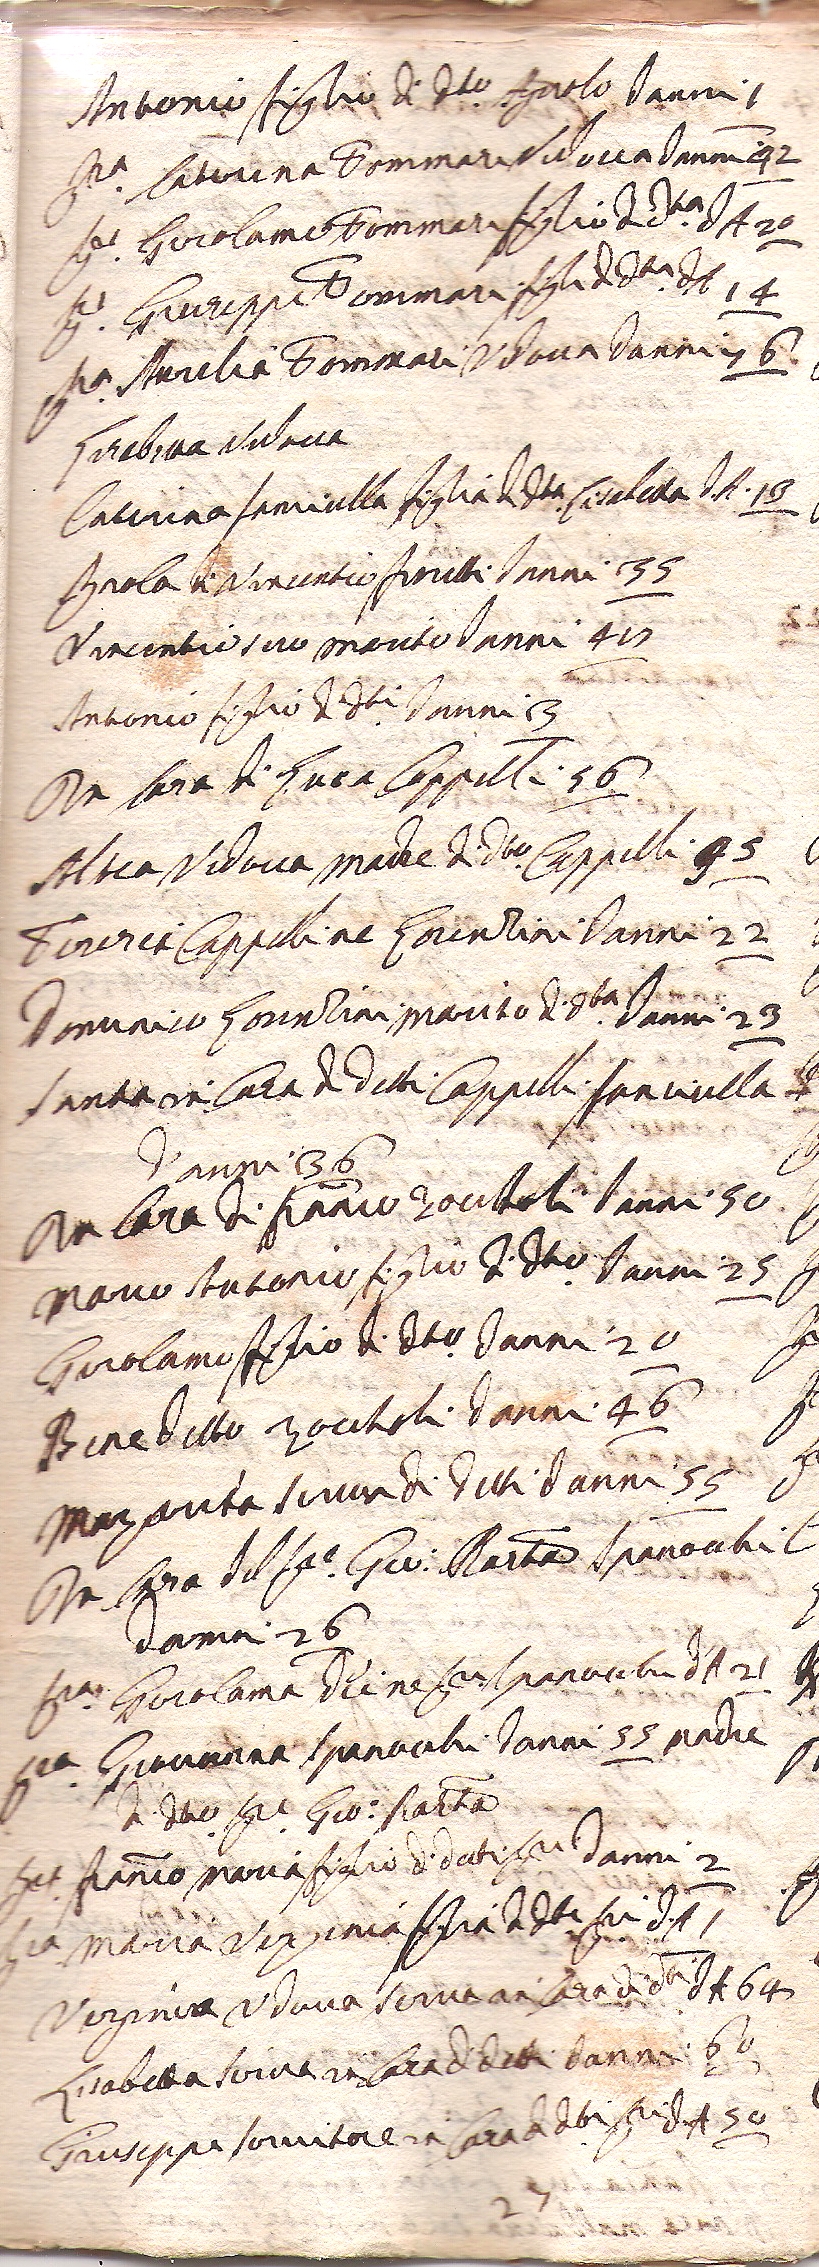 Antonio figlio di dto. Paolo d'anni 1
Sra. Caterina Tommasi Vedova d'anni 42
Sr. Girolamo Tommasi figlio di dta. d'A 20
Sr. Giuseppe Tommasi figlio di dta. d'A 14
Sra. Aurelia Tommasi Vedova d'anni 56
Lisabetta Vedova
Caterina fanciulla figlia di dta. Lisabetta d'A. 18
Paola di Vincentio d'anni 35
Vincentio suo marito d'anni
Antonio figlio di dti. d'anni 3
In Casa di Luca Cappelli 56
Vedova madre di dto. Cappelli 95
Cappelli ne Lorenzini d'anni 22
Domenico Lorenzini marito di dta. d'anni 23
Santa in Casa di detti Cappelli fanciulla
d'anni 36
In Casa di Franco d'anni 50
Marco Antonio figlio di dto. d'anni 25
Girolamo figlio di dto. d'anni 20
Benedetto d'anni 46
Margarita serva di detti d'anni 55
In Casa del Sre. Gio: Batta Spanocchi
d'anni 26
Sra. Girolama Spanocchi d'A 21
Sra. Giovanna Spanocchi d'anni 55 madre
di dto. Sre. Gio: Batta
Sr. Franco Maria figlio di detti Sri d'anni 2
Sra Maria Verginia figlia di dti Sri d'A 1
Verginia Vedova serva in Casa di dti d'A 64
Lisabetta serva in Casa di detti d'anni 60
Giuseppe servitore in Casa di dti Sri d'A 50